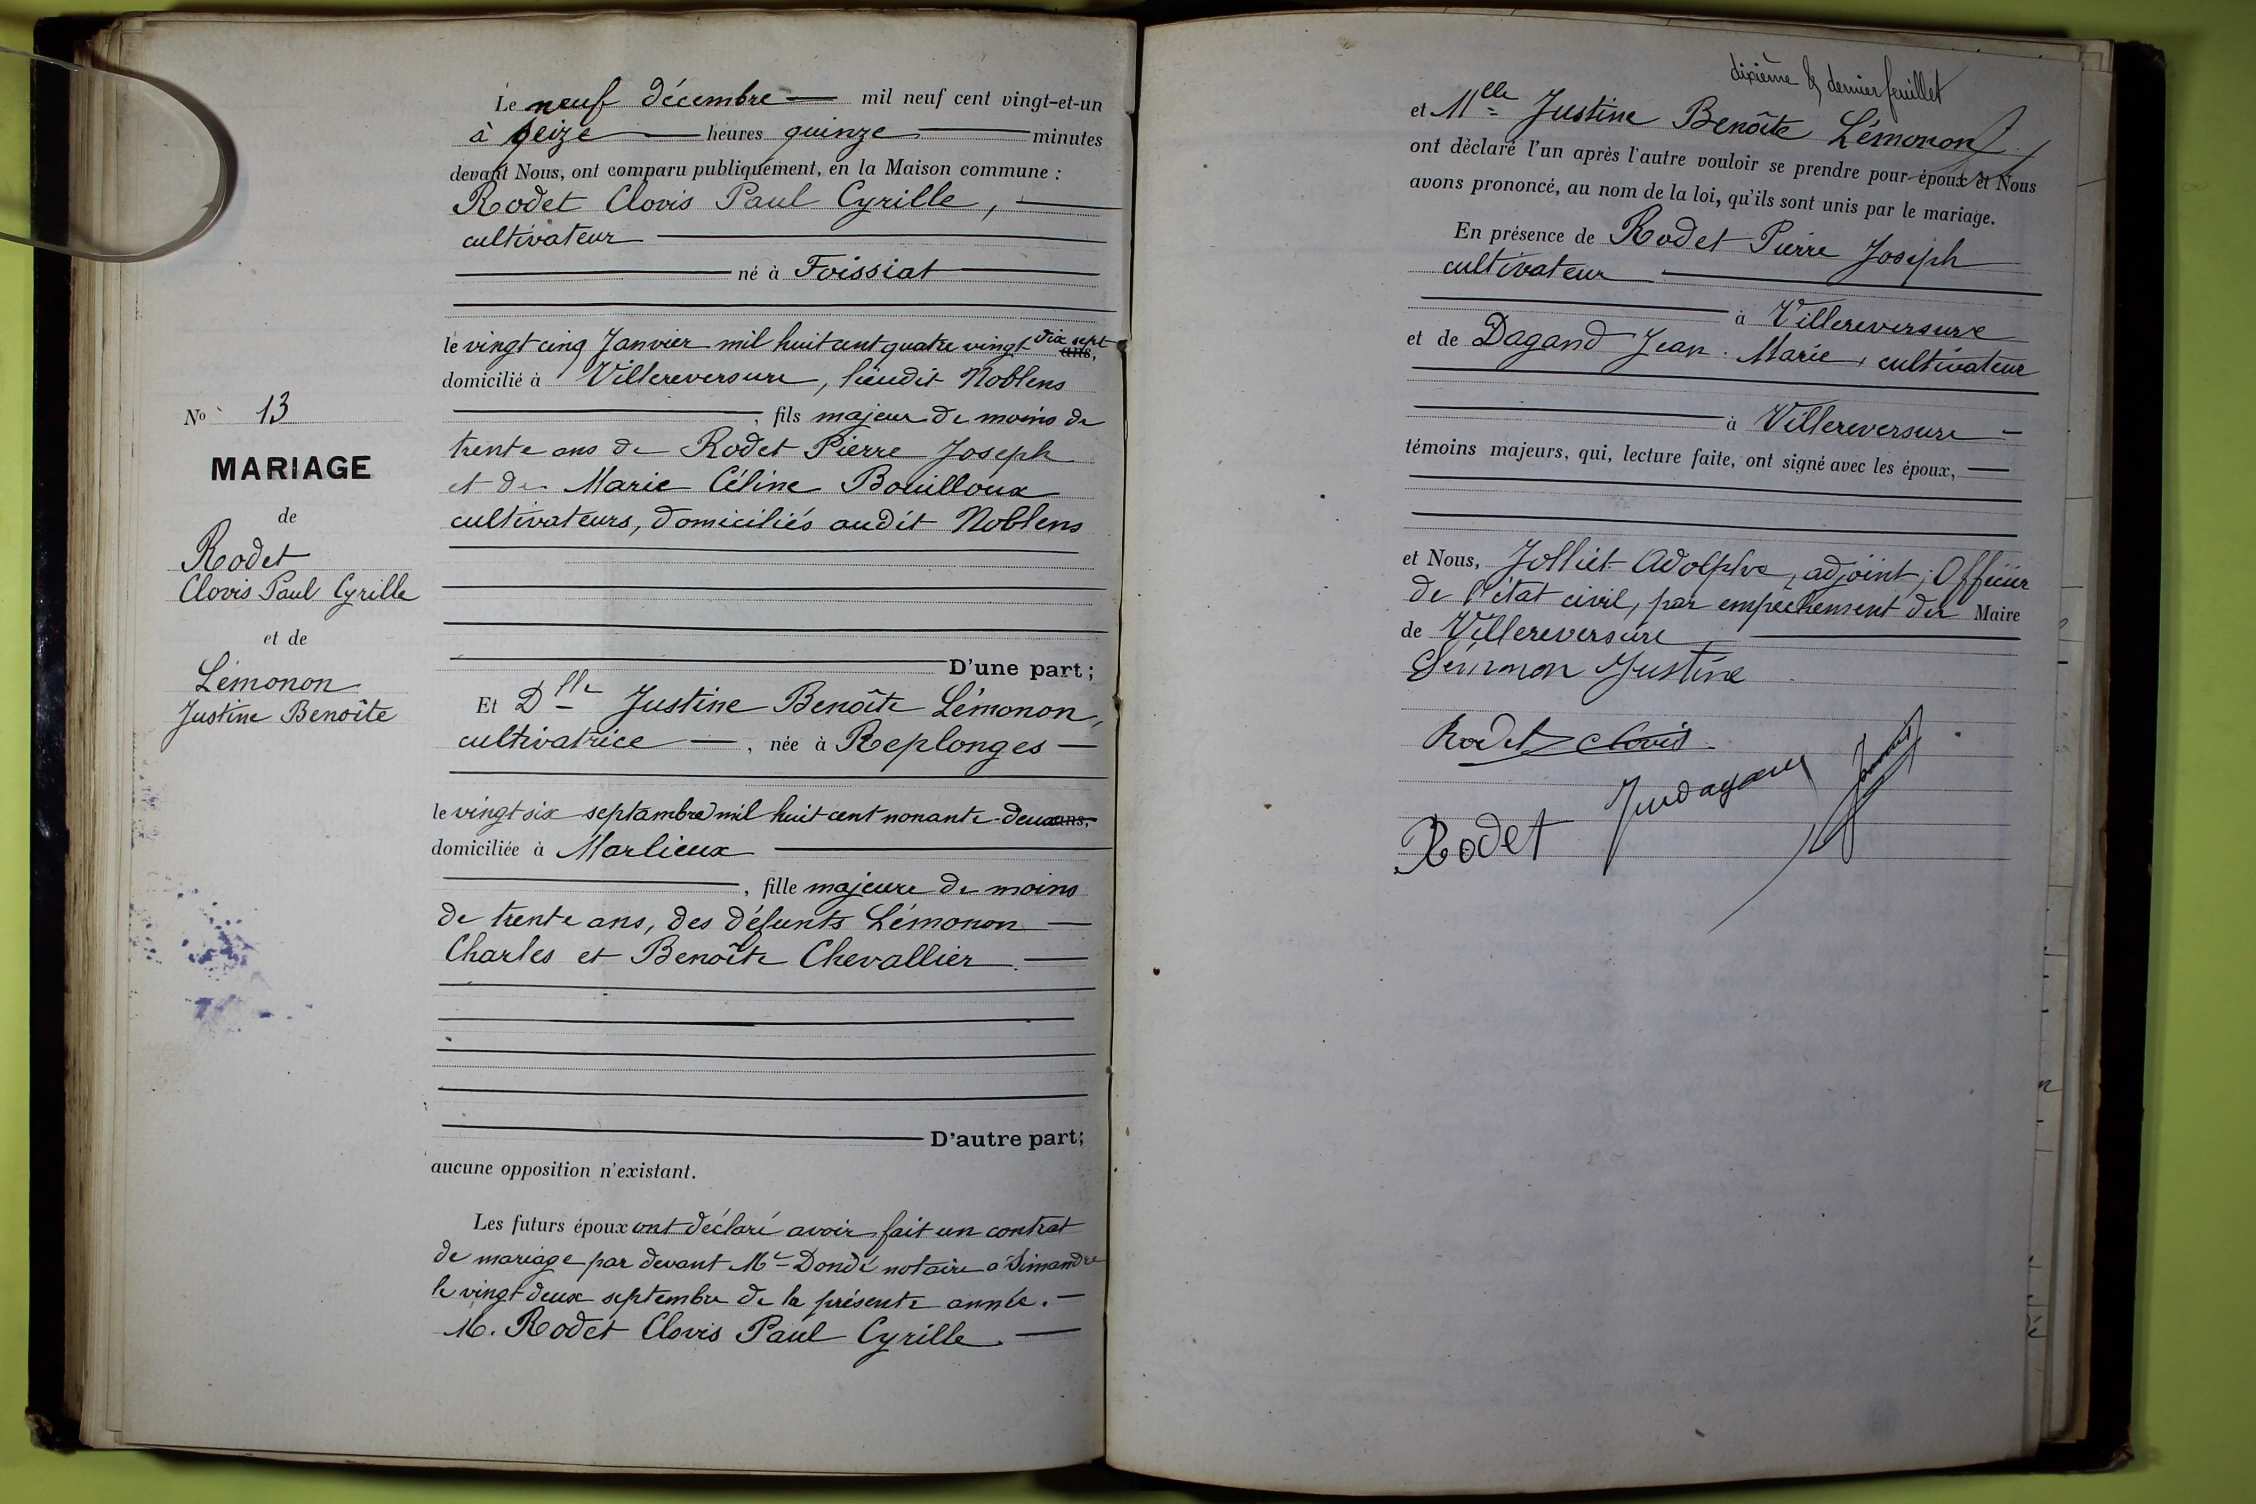 Le neuf décembre mil neuf cent vingt-et-un
à seize heures quinze minutes
devant Nous, ont comparu publiquement, en la Maison commune :
Rodet Clovis Paul Cyrille,
cultivateur
né à Foissiat
le vingt cinq Janvier mil huit cent quatre vingt dix sept ans,
domicilié à Villereversure, lieudit Noblens
, fils majeur de moins de
trente ans de Rodet Pierre Joseph
et de Marie Céline Bouilloux
cultivateurs, domiciliés audit Noblens
D'une part ;
Et Dlle Justine Benoîte Lémonon,
cultivatrice , née à Replonges
le vingt six septembre mil huit cent nonante-deux ans,
domiciliée à Marlieux
, fille majeure de moins
de trente ans, des défunts Lémonon
Charles et Benoîte Chevallier
D'autre part;
aucune opposition n'existant.
Les futurs époux ont déclaré avoir fait un contrat
de mariage par devant Me Dondé notaire à Simandre
le vingt deux septembre de la présente année.
M. Rodet Clovis Paul Cyrille
No 13
MARIAGE
de
Rodet
Clovis Paul Cyrille
et de
Lémonon
Justine Benoîte
dixième & dernier feuillet
et Mlle Justine Benoîte Lémonon
ont déclaré l'un après l'autre vouloir se prendre pour époux et Nous
avons prononcé, au nom de la loi, qu'ils sont unis par le mariage.
En présence de Rodet Pierre Joseph
cultivateur
à Villereversure
et de Dagand Jean-Marie, cultivateur
à Villereversure
témoins majeurs, qui, lecture faite, ont signé avec les époux,
et Nous, Jolliet Adolphe, adjoint, Officier
de l'état civil, par empêchement du Maire
de Villereversure
Justine
Rodet Clovis
Rodet